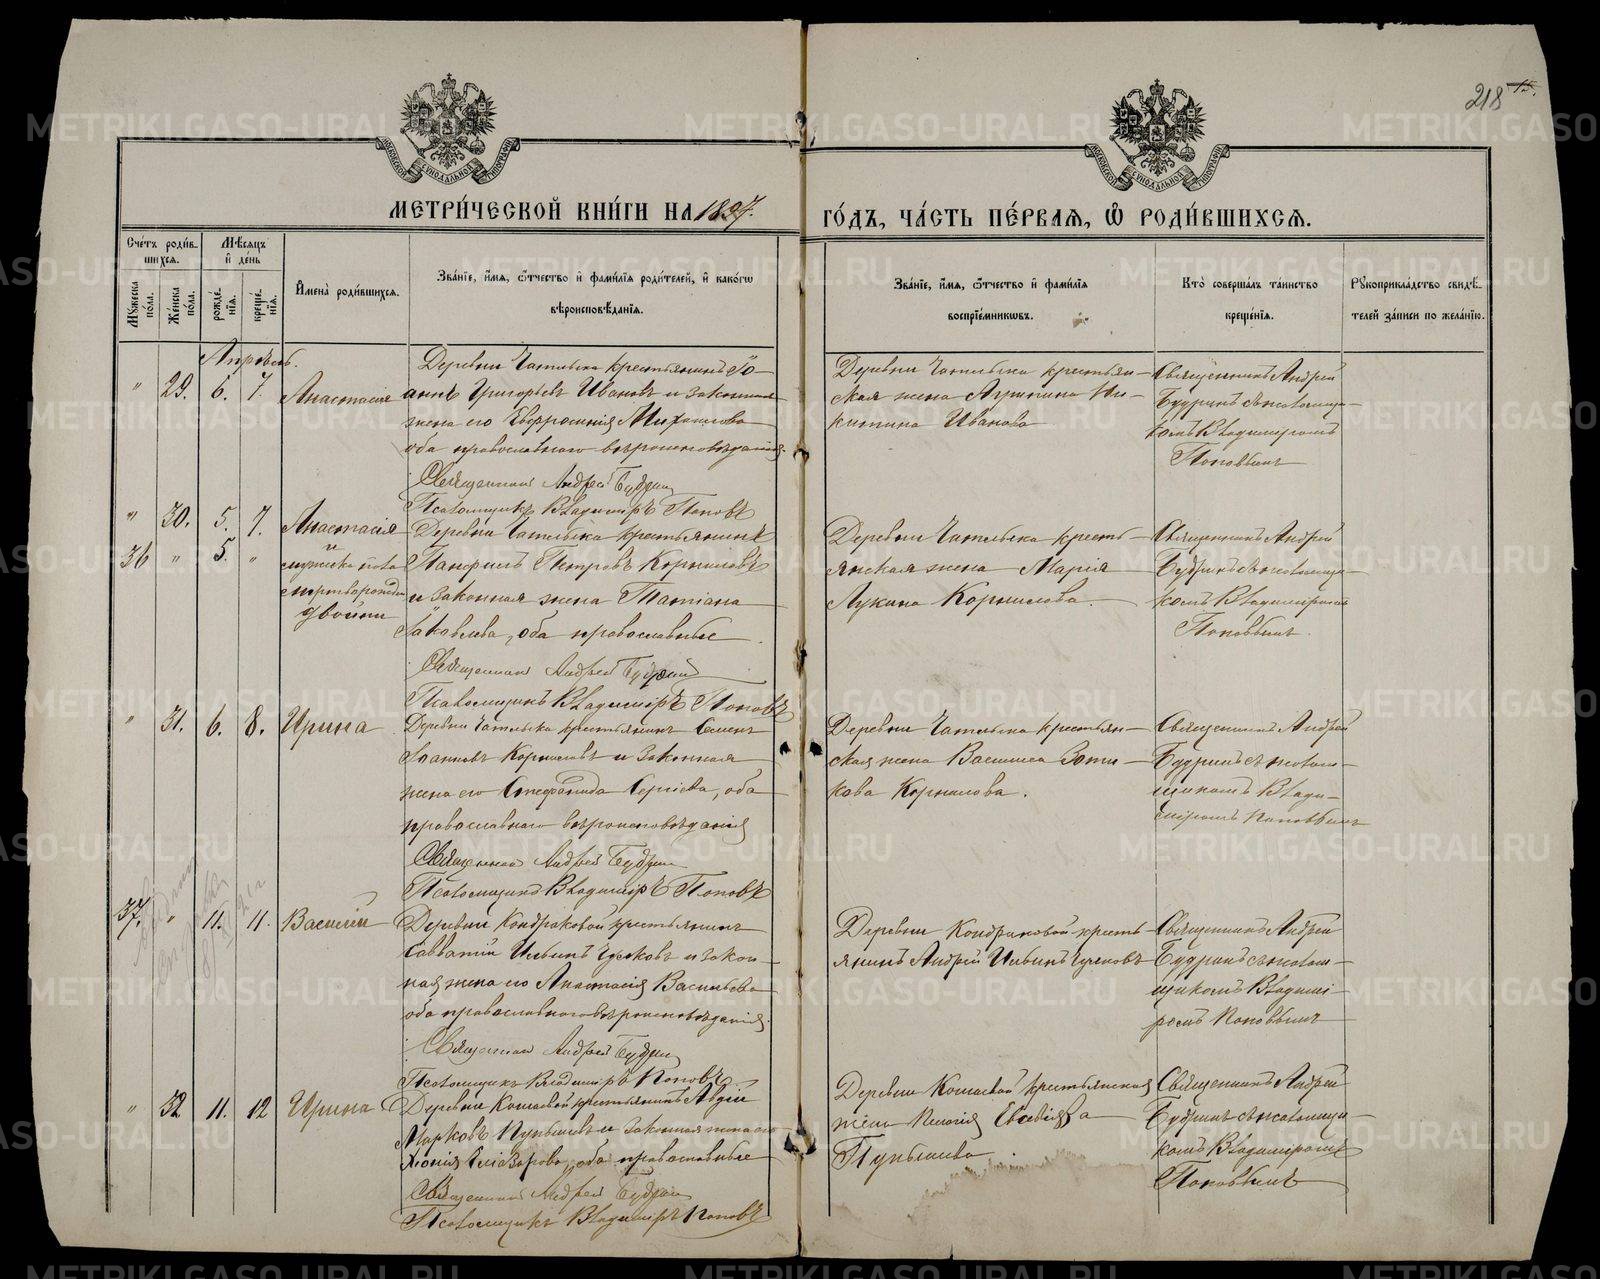 218 15.
МОСКОВСКОЙ СѴНОДАЛЬНОЙ ТИПОГРАФІИ
МОСКОВСКОЙ СѴНОДАЛЬНОЙ ТИПОГРАФІИ
МЕТРИ́ЧЕСКОЙ КНИ́ГИ НА 1897. ГО́ДЪ, ЧА́СТЬ ПЕ́РВАѦ, Ѽ РОДИ́ВШИХСѦ.
Сче́тъ роди́в-
шихсѧ.
Мѣ́сѧцъ
и҆ де́нь
Мꙋжеска по́ла.
Же́нска по́ла.
рожде́-
нїѧ.
креще́-
нїѧ.
И҆мена̀ роди́вшихсѧ.
Зва́нїе, и҆́мѧ, ѻ҆́тчество и҆ фами́лїѧ роди́телей, и҆ како́гѡ
вѣроисповѣ́данїѧ.
Зва́нїе, и҆́мѧ, ѻ҆́тчество и҆ фами́лїѧ
воспрїе́мникѡвъ.
Кто̀ соверша́лъ та́инство
креще́нїѧ.
Рꙋкоприкла́дство свидѣ́-
телей за́писи по жела́нїю.
Апрѣль.
" 29. 6. 7. Анастасія
Деревни Чатлыка крестьянинъ Іо-
аннъ Григорьевъ Ивановъ и законная
жена его Евфросинія Михаилова
оба православнаго вѣроисповѣданія.
Священникъ Андрей Будринъ
Псаломщикъ Владиміръ Поповъ
Деревни Чатлыка крестьян-
ская жена Ни-
китина Иванова
Священникъ Андрей
Будринъ съ псаломщи-
комъ Владиміромъ
Поповымъ
" 30. 5. 7. Анастасія
36 " 5. " и
мужеска пола
мертворожден
двойни
Деревни Чатлыка крестьянинъ
Панфилъ Петровъ Корниловъ
и законная жена Татіана
Іаковлева, оба православные
Священникъ Андрей Будринъ
Псаломщикъ Владиміръ Поповъ
Деревни Чатлыка кресть-
янская жена Марія
Лукина Корнилова.
Священникъ Андрей
Будринъ съ псаломщи-
комъ Владиміромъ
Поповымъ.
" 31. 6. 8. Ирина
Деревни Чатлыка крестьянинъ Семенъ
Іоанновъ Корниловъ и законная
жена его Стефанида Сергіева, оба
православнаго вѣроисповѣданія
Священникъ Андрей Будринъ
Псаломщикъ Владиміръ Поповъ
Деревни Чатлыка крестьян-
ская жена Васса Зоти-
кова Корнилова.
Священникъ Андрей
Будринъ съ псалом-
щикомъ Влади-
міромъ Поповымъ
37. " 11. 11. Василій
Деревни Кондраковой крестьянинъ
Савватій Ильинъ Чусковъ и закон-
ная жена его Анастасія Васильева
оба православнаго вѣроисповѣданія.
Священникъ Андрей Будринъ
Псаломщикъ Владиміръ Поповъ
Деревни Кондраковой кресть-
янинъ Андрей Ильинъ
Священникъ Андрей
Будринъ съ псалом-
щикомъ Владимі-
ромъ Поповымъ
" 32 11. 12 Ирина
Деревни Кошаевой крестьянинъ Авдій
Марковъ Пупышевъ и законная жена его
Хіонія Еліазарова, оба православные
Священникъ Андрей Будринъ
Псаломщикъ Владиміръ Поповъ
Деревни Кошаевой крестьянская
жена Евсевіева
Пупышева.
Священникъ Андрей
Будринъ съ псаломщи-
комъ Владиміромъ
Поповымъ
METRIKI.GASO-URAL.RU